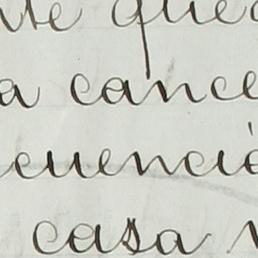 te que
a cance
cuenció
casa